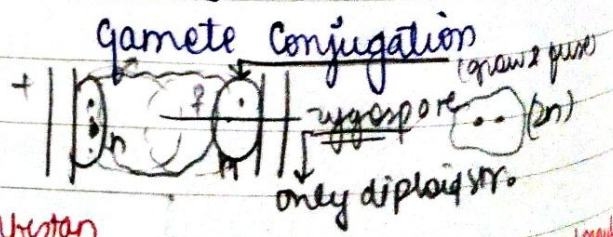 gamete Conjugation
(grow & fuse
+ n f n zygospore (2n)
only diploid str.